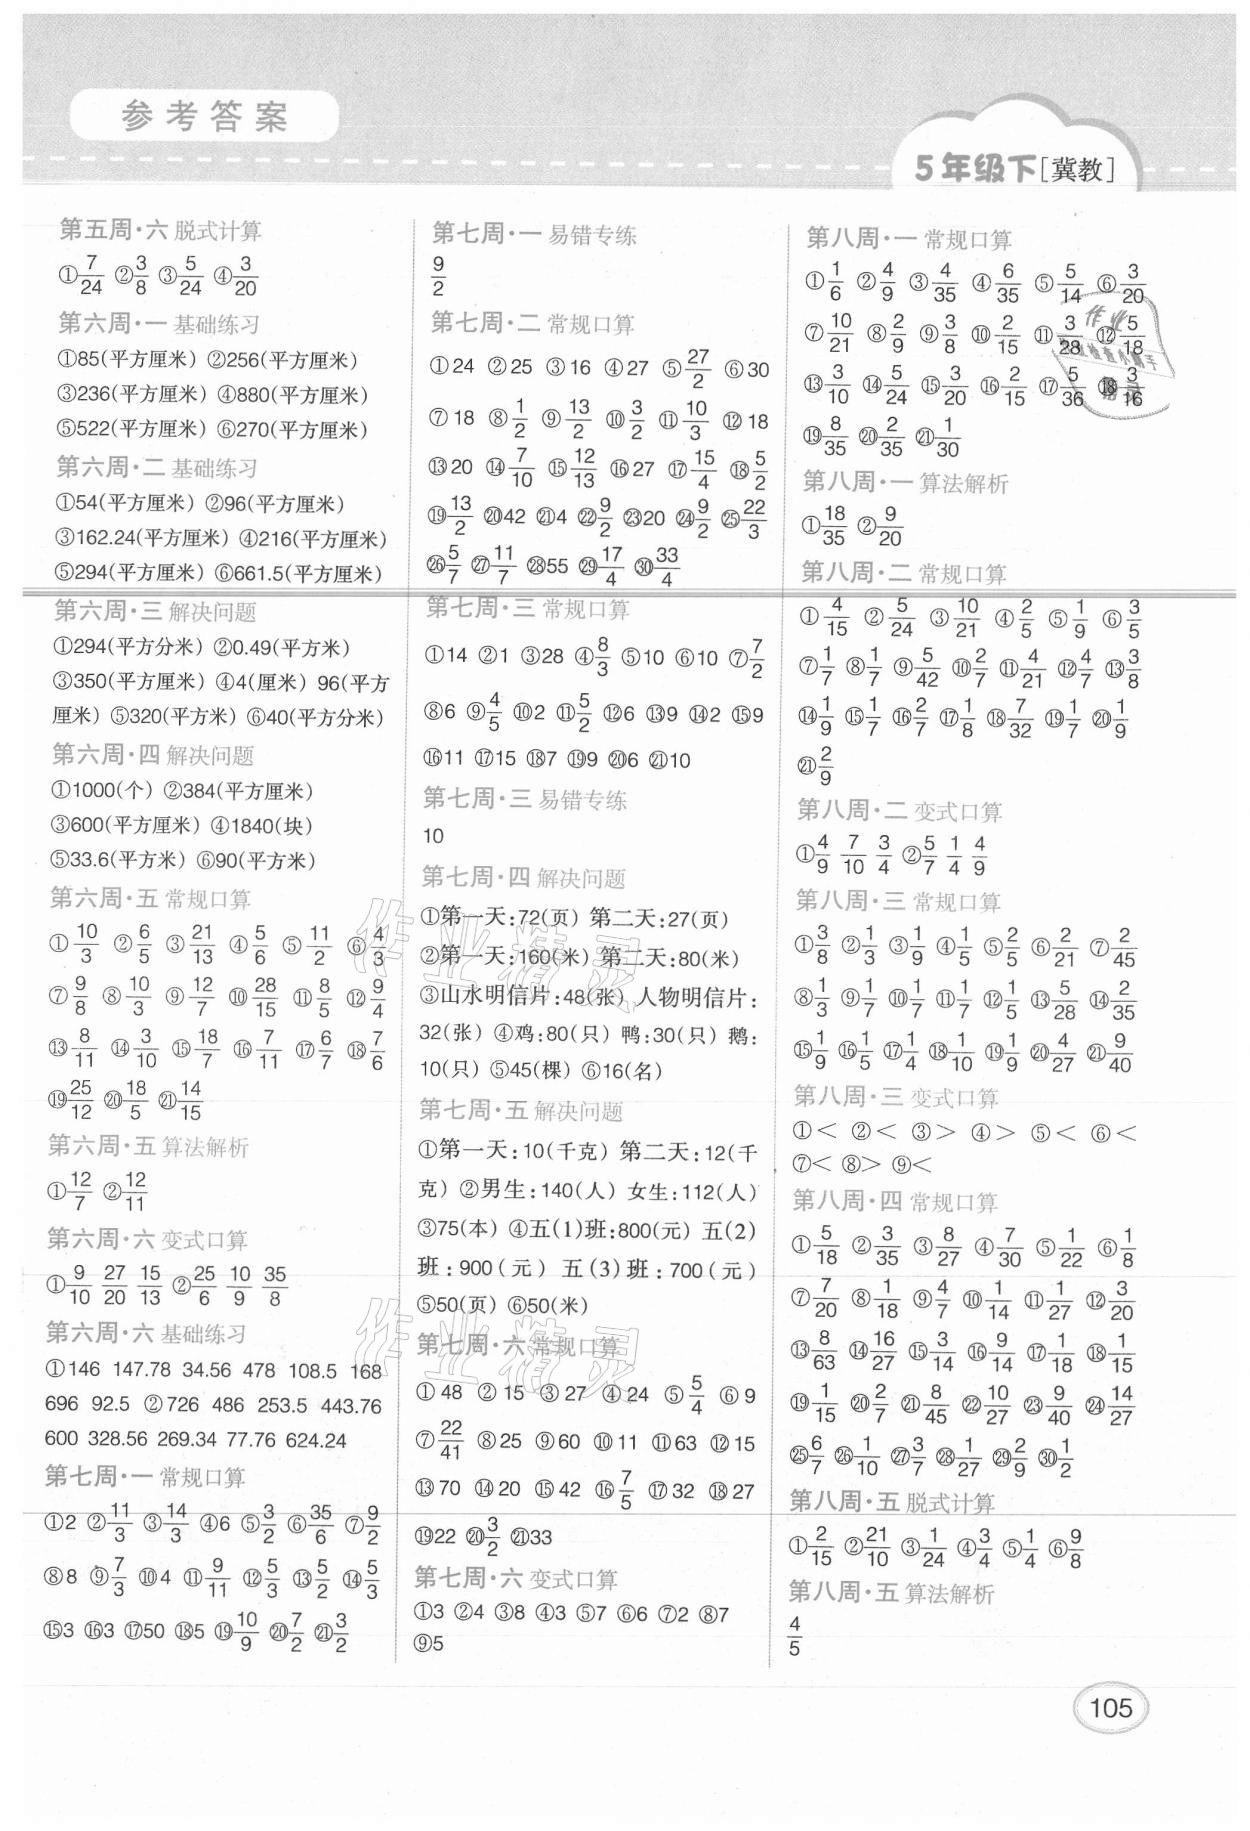 参考答案
5年级下[冀教]
第五周·六 脱式计算
①7/24 ②3/8 ③5/24 ④3/20
第六周·一 基础练习
①85(平方厘米) ②256(平方厘米)
③236(平方厘米) ④880(平方厘米)
⑤522(平方厘米) ⑥270(平方厘米)
第六周·二 基础练习
①54(平方厘米) ②96(平方厘米)
③162.24(平方厘米) ④216(平方厘米)
⑤294(平方厘米) ⑥661.5(平方厘米)
第六周·三 解决问题
①294(平方分米) ②0.49(平方米)
③350(平方厘米) ④4(厘米) 96(平方
厘米) ⑤320(平方米) ⑥40(平方分米)
第六周·四 解决问题
①1000(个) ②384(平方厘米)
③600(平方厘米) ④1840(块)
⑤33.6(平方米) ⑥90(平方米)
第六周·五 常规口算
①10/3 ②6/5 ③21/13 ④5/6 ⑤11/2 ⑥4/3
⑦9/8 ⑧10/3 ⑨12/7 ⑩28/15 ⑪8/5 ⑫9/4
⑬8/11 ⑭3/10 ⑮18/7 ⑯7/11 ⑰6/7 ⑱7/6
⑲25/12 ⑳18/5 ㉑14/15
第六周·五 算法解析
①12/7 ②12/11
第六周·六 变式口算
①9/10 27/20 15/13 ②25/6 10/9 35/8
第六周·六 基础练习
①146 147.78 34.56 478 108.5 168
696 92.5 ②726 486 253.5 443.76
600 328.56 269.34 77.76 624.24
第七周·一 常规口算
①2 ②11/3 ③14/3 ④6 ⑤3/2 ⑥35/6 ⑦9/2
⑧8 ⑨7/3 ⑩4 ⑪9/11 ⑫5/3 ⑬5/2 ⑭5/3
⑮3 ⑯3 ⑰50 ⑱5 ⑲10/9 ⑳7/2 ㉑3/2
第七周·一 易错专练
9/2
第七周·二 常规口算
①24 ②25 ③16 ④27 ⑤27/2 ⑥30
⑦18 ⑧1/2 ⑨13/2 ⑩3/2 ⑪10/3 ⑫18
⑬20 ⑭7/10 ⑮12/13 ⑯27 ⑰15/4 ⑱5/2
⑲13/2 ⑳42 ㉑4 ㉒9/2 ㉓20 ㉔9/2 ㉕22/3
㉖5/7 ㉗11/7 ㉘55 ㉙17/4 ㉚33/4
第七周·三 常规口算
①14 ②1 ③28 ④8/3 ⑤10 ⑥10 ⑦7/2
⑧6 ⑨4/5 ⑩2 ⑪5/2 ⑫6 ⑬9 ⑭2 ⑮9
⑯11 ⑰15 ⑱7 ⑲9 ⑳6 ㉑10
第七周·三 易错专练
10
第七周·四 解决问题
①第一天:72(页) 第二天:27(页)
②第一天:160(米) 第二天:80(米)
③山水明信片:48(张) 人物明信片:
32(张) ④鸡:80(只) 鸭:30(只) 鹅:
10(只) ⑤45(棵) ⑥16(名)
第七周·五 解决问题
①第一天:10(千克) 第二天:12(千
克) ②男生:140(人) 女生:112(人)
③75(本) ④五(1)班:800(元) 五(2)
班:900(元) 五(3)班:700(元)
⑤50(页) ⑥50(米)
第七周·六 常规口算
①48 ②15 ③27 ④24 ⑤5/4 ⑥9
⑦22/41 ⑧25 ⑨60 ⑩11 ⑪63 ⑫15
⑬70 ⑭20 ⑮42 ⑯7/5 ⑰32 ⑱27
⑲22 ⑳3/2 ㉑33
第七周·六 变式口算
①3 ②4 ③8 ④3 ⑤7 ⑥6 ⑦2 ⑧7
⑨5
第八周·一 常规口算
①1/6 ②4/9 ③4/35 ④6/35 ⑤5/14 ⑥3/20
⑦10/21 ⑧2/9 ⑨3/8 ⑩2/15 ⑪3/28 ⑫5/18
⑬3/10 ⑭5/24 ⑮3/20 ⑯2/15 ⑰5/36 ⑱3/16
⑲8/35 ⑳2/35 ㉑1/30
第八周·一 算法解析
①18/35 ②9/20
第八周·二 常规口算
①4/15 ②5/24 ③10/21 ④2/5 ⑤1/9 ⑥3/5
⑦1/7 ⑧1/7 ⑨5/42 ⑩2/7 ⑪4/21 ⑫4/7 ⑬3/8
⑭1/9 ⑮1/7 ⑯2/7 ⑰1/8 ⑱7/32 ⑲1/7 ⑳1/9
㉑2/9
第八周·二 变式口算
①4/9 7/10 3/4 ②5/7 1/4 4/9
第八周·三 常规口算
①3/8 ②1/3 ③1/9 ④1/5 ⑤2/5 ⑥2/21 ⑦2/45
⑧1/3 ⑨1/7 ⑩1/7 ⑪1/7 ⑫1/5 ⑬5/28 ⑭2/35
⑮1/9 ⑯1/5 ⑰1/4 ⑱1/10 ⑲1/9 ⑳4/27 ㉑9/40
第八周·三 变式口算
①< ②< ③> ④> ⑤< ⑥<
⑦< ⑧> ⑨<
第八周·四 常规口算
①5/18 ②3/35 ③8/27 ④7/30 ⑤1/22 ⑥1/8
⑦7/20 ⑧1/18 ⑨4/7 ⑩1/14 ⑪1/27 ⑫3/20
⑬8/63 ⑭16/27 ⑮3/14 ⑯9/14 ⑰1/18 ⑱1/15
⑲1/15 ⑳2/7 ㉑8/45 ㉒10/27 ㉓9/40 ㉔14/27
㉕6/7 ㉖1/10 ㉗3/7 ㉘1/27 ㉙2/9 ㉚1/2
第八周·五 脱式计算
①2/15 ②21/10 ③1/24 ④3/4 ⑤1/4 ⑥9/8
第八周·五 算法解析
4/5
105
作业精灵
作业精灵